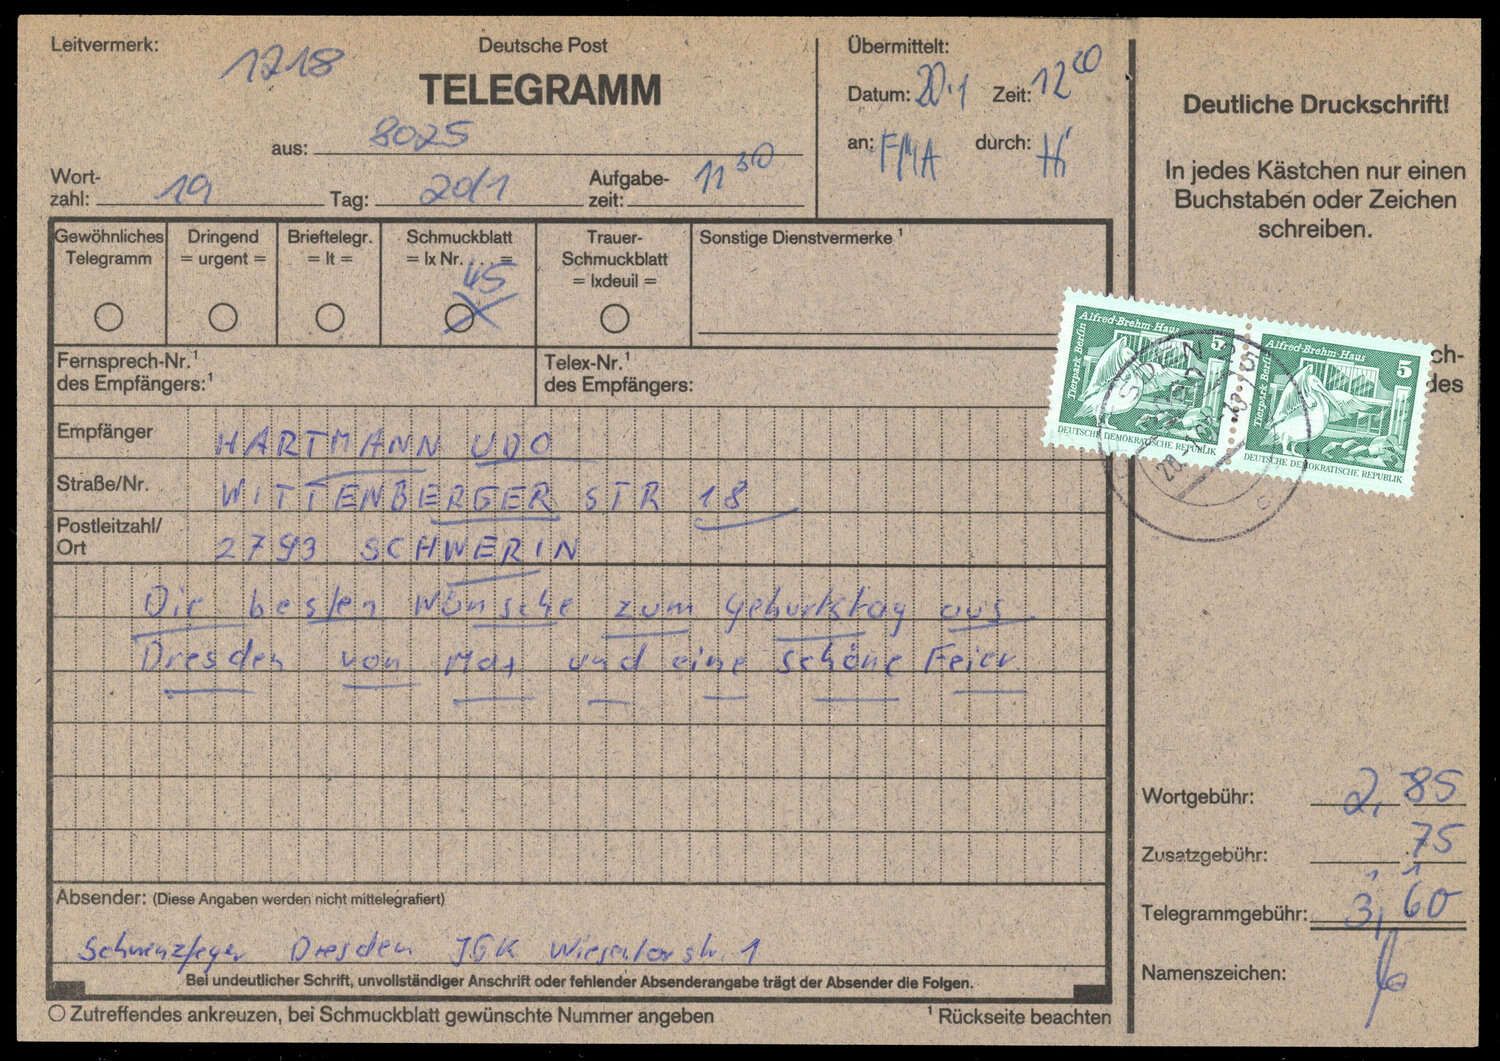 Leitvermerk: 1218
Deutsche Post
TELEGRAMM
aus: 8025
Wort-
zahl: 19 Tag: 20/1 Aufgabe-
zeit: 11 30
Übermittelt:
Datum: 20.1 Zeit: 12 00
an: FMA durch: Hi
Gewöhnliches
Telegramm
Dringend
= urgent =
Brieftelegr.
= lt =
Schmuckblatt
= lx Nr. . . . . =
45
Trauer-
Schmuckblatt
= lxdeuil =
Sonstige Dienstvermerke 1
Fernsprech-Nr.1
des Empfängers:1
Telex-Nr.1
des Empfängers:
Empfänger HARTMANN UDO
Straße/Nr. WITTENBERGER STR 18
Postleitzahl/
Ort 2793 SCHWERIN
Die besten Wünsche zum Geburtstag aus
Dresden von Mat und eine schöne Feier
Absender: (Diese Angaben werden nicht mittelegrafiert)
Dresden JGK 1
Bei undeutlicher Schrift, unvollständiger Anschrift oder fehlender Absenderangabe trägt der Absender die Folgen.
Zutreffendes ankreuzen, bei Schmuckblatt gewünschte Nummer angeben
1 Rückseite beachten
Deutliche Druckschrift!
In jedes Kästchen nur einen
Buchstaben oder Zeichen
schreiben.
ch-
des
Alfred-Brehm-Haus
Tierpark Berlin
5
DEUTSCHE DEMOKRATISCHE REPUBLIK
Alfred-Brehm-Haus
Tierpark Berlin
5
DEUTSCHE DEMOKRATISCHE REPUBLIK
c
Wortgebühr: 2,85
Zusatzgebühr: 75
Telegrammgebühr: 3,60
Namenszeichen: